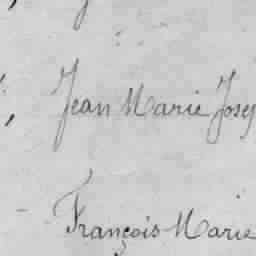 Jean Marie Josep
François Marie